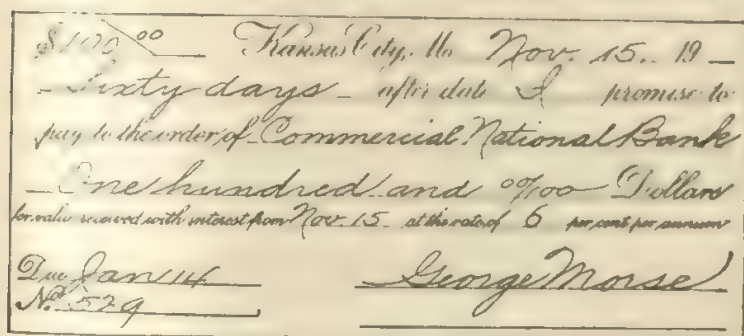 $100 00 Kansas City, Mo Nov. 15. 19_
Sixty days after date I promise to
pay to the order of Commercial National Bank
One hundred and 00/100 Dollars
for value received with interest from Nov. 15 at the rate of 6 per cent per annum
Due Jan 14 George Morse
No. 529